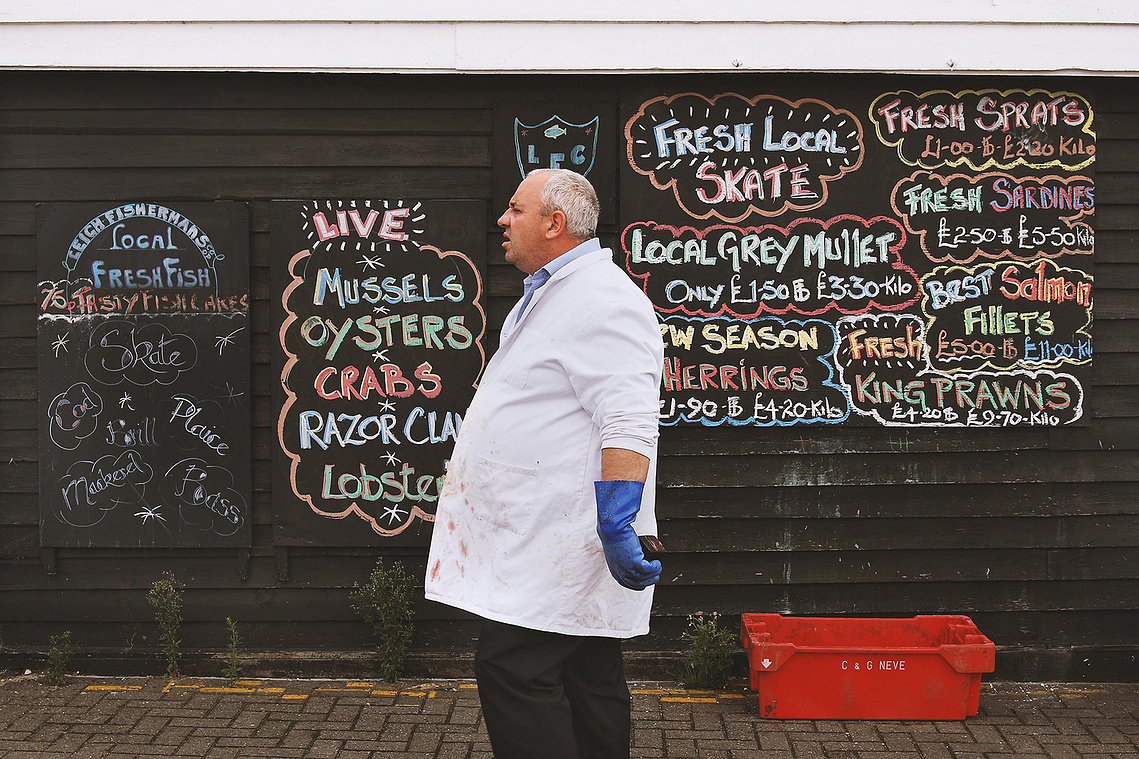 LEIGH FISHERMANS CO
LOCAL
FRESH FISH
TASTY FISH CAKES
Skate
Cod
Brill
Plaice
Mackerel
LIVE
MUSSELS
OYSTERS
CRABS
RAZOR CLAM
Lobster
LFC
FRESH LOCAL
SKATE
LOCAL GREY MULLET
ONLY £1-50 lb £3-30 Kilo
EW SEASON
HERRINGS
£1-90 lb £4-20 Kilo
FRESH SPRATS
£1-00 lb £2-20 Kilo
FRESH SARDINES
£2-50 lb £5-50 Kilo
BEST Salmon
FILLETS
£5-00 lb £11-00 Kil
FRESH
KING PRAWNS
£4-20 lb £9-70 Kilo
C & G NEVE